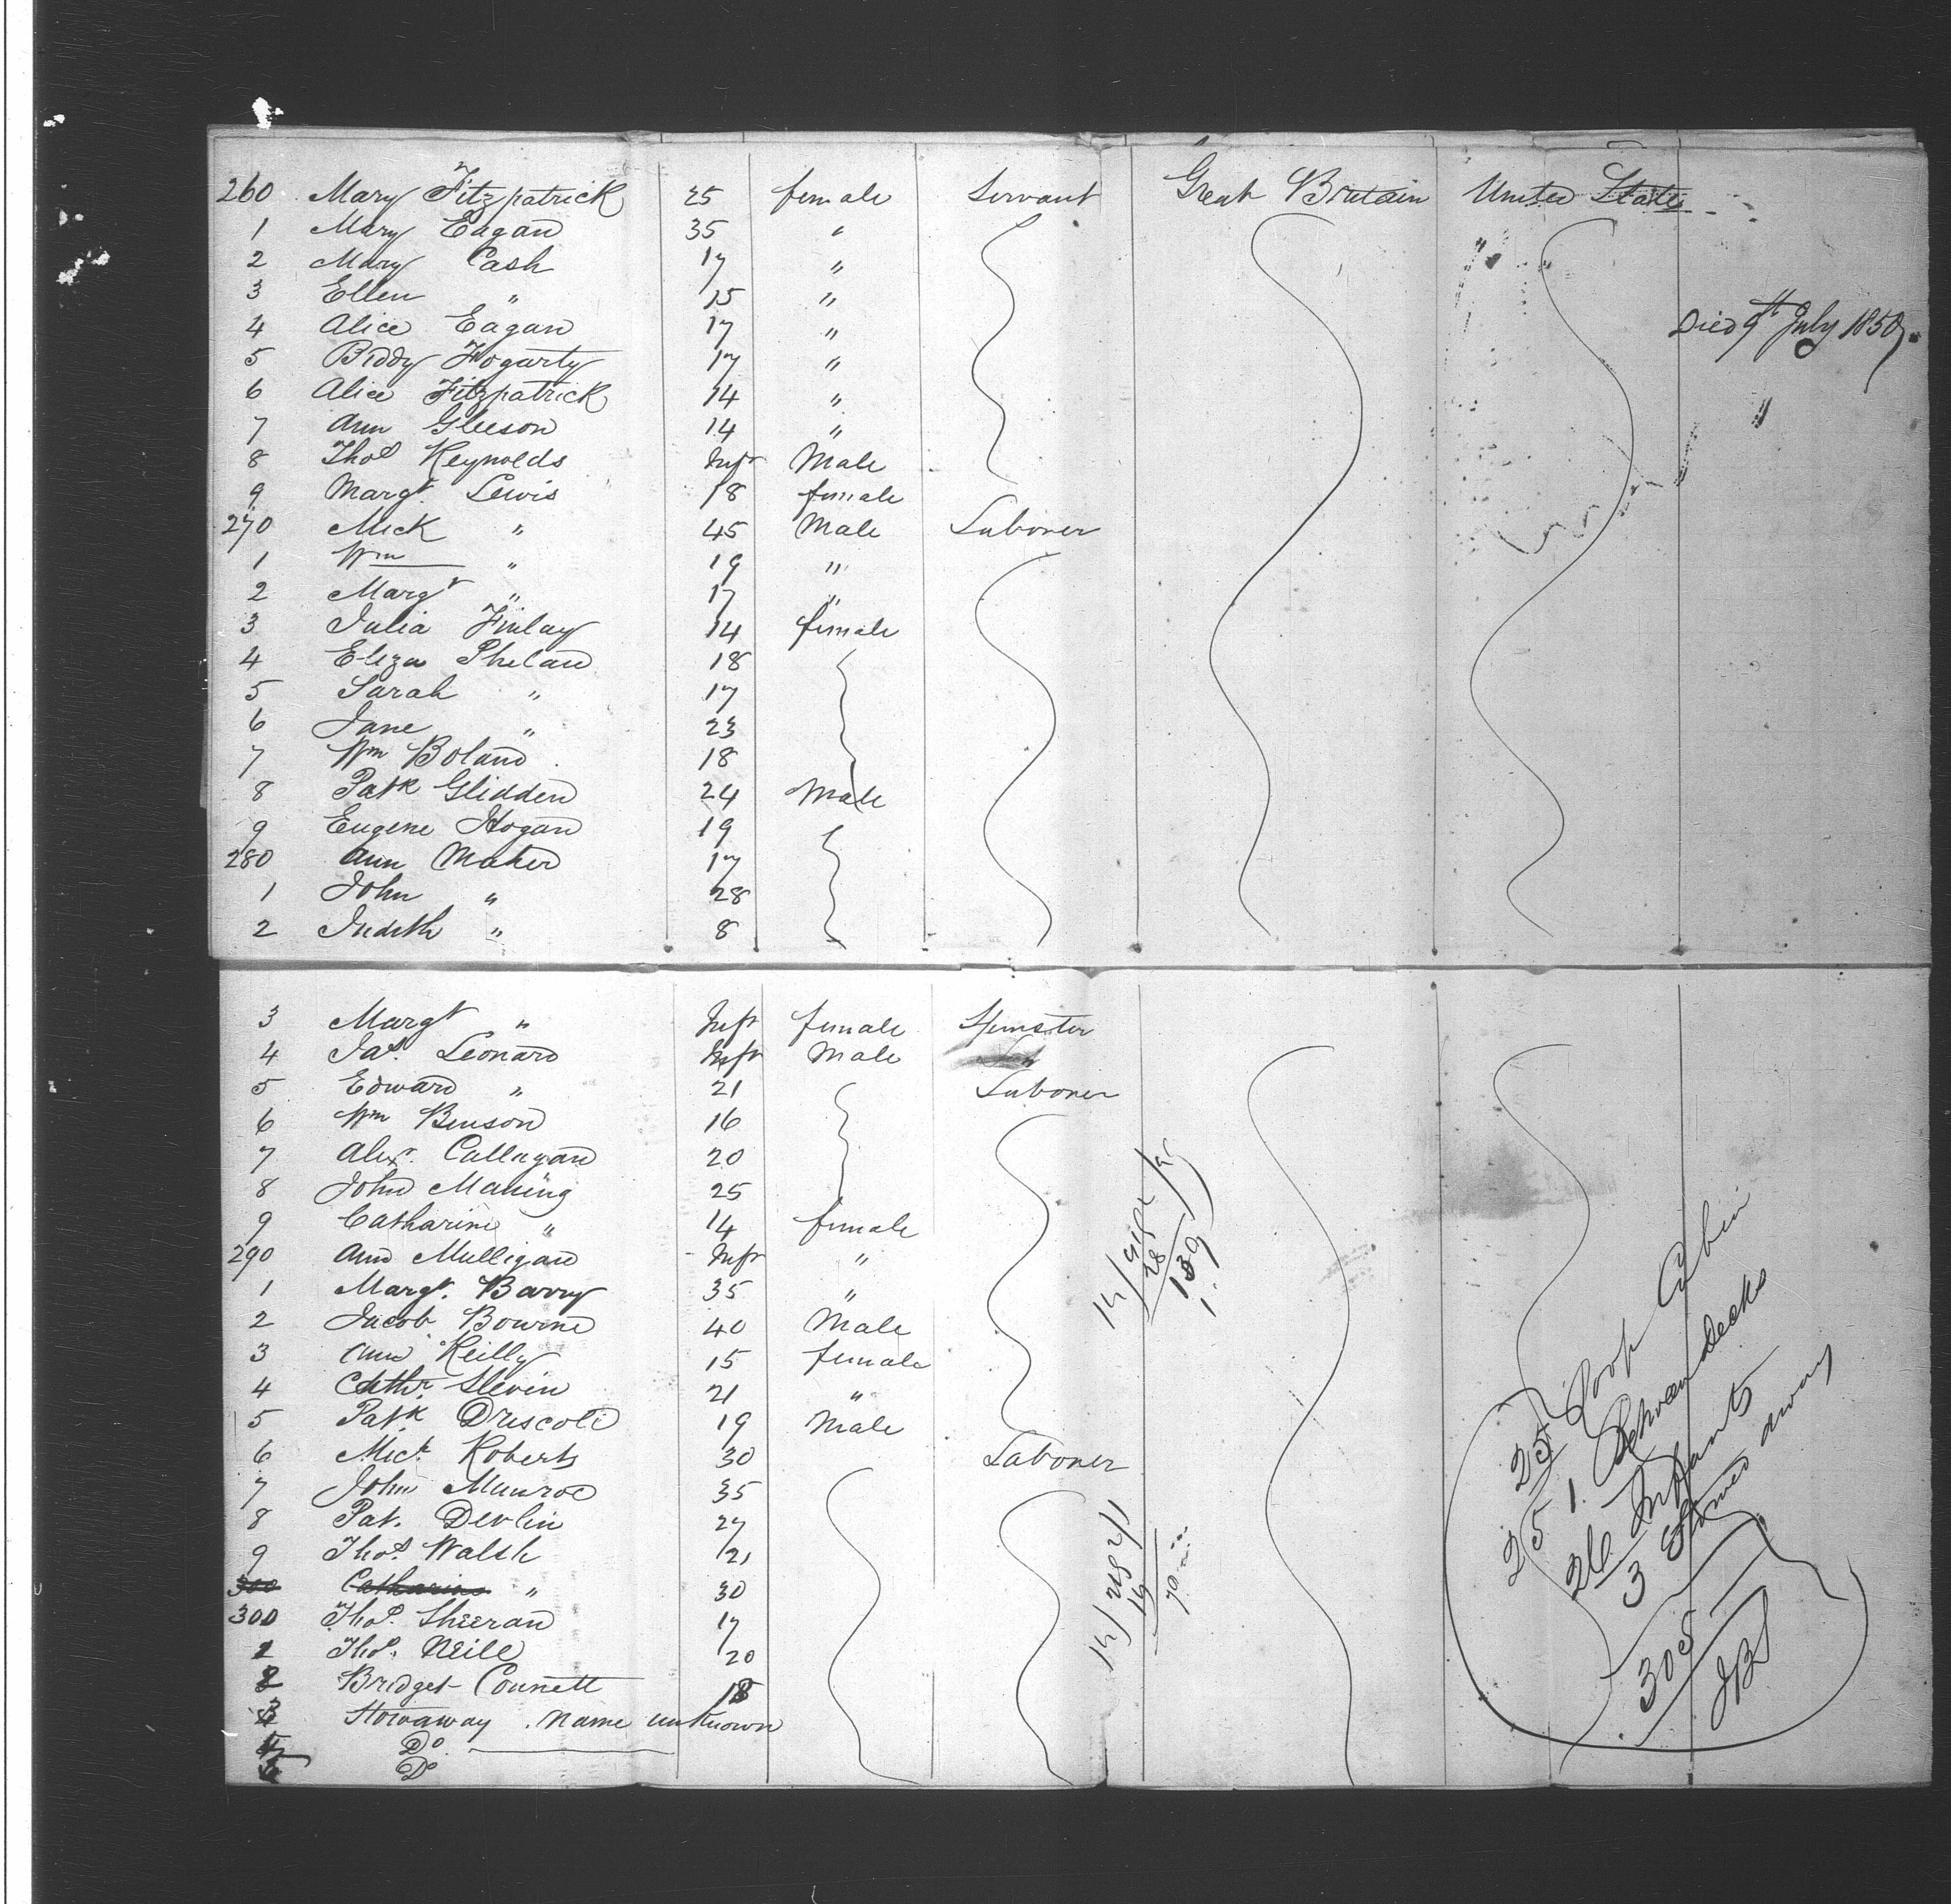 260 Mary Fitzpatrick 25 female Servant Great Britain United States
1 Mary Eagan 35 "
2 Mary Cash 17 " "
3 Ellen " 15 "
4 Alice Eagan 17 " Died 9th July 1850
5 Biddy Hogarty 17 "
6 Alice Fitzpatrick 14 "
7 Ann Gleeson 14 " "
8 Thos Reynolds Inft Male
9 Margt. Lewis 18 female
270 Mick " 45 Male Laborer
1 Wm " 19 "
2 Margt " 17 "
3 Julia Finlay 14 female
4 Eliza Phelan 18
5 Sarah " 17
6 Jane " 23
7 Wm Boland 18
8 Patk Glidden 24 Male
9 Eugene Hogan 19
280 Ann Maher 17
1 John " 28
2 Judith " 8
3 Margt " Inft female Spinster
4 Jas. Leonard Inft Male
5 Edward " 21 Laborer
6 Wm Benson 16
7 Alexr. Callagan 20
8 John Maning 25
9 Catharine " 14 female
290 Ann Mulligan Inft "
1 Margt. Barry 35 "
2 Jacob Bourne 40 Male
3 Ann Keilly 15 female
4 Cathr. Slevin 21 "
5 Patk Driscoll 19 Male
6 Mick Roberts 30 Laborer
7 John Munroe 35
8 Pat. Devlin 27
9 Thos. Walsh 21
300 Catharine " 30
300 Thos. Sheeran 17
1 Thos. Neill 20
2 Bridget Connett 18
3 Stowaway . name unknown
4 Do
5 Do
25 Poop Cabin
251. Between Decks
26 Infants
3 Stowed away
305
JBS